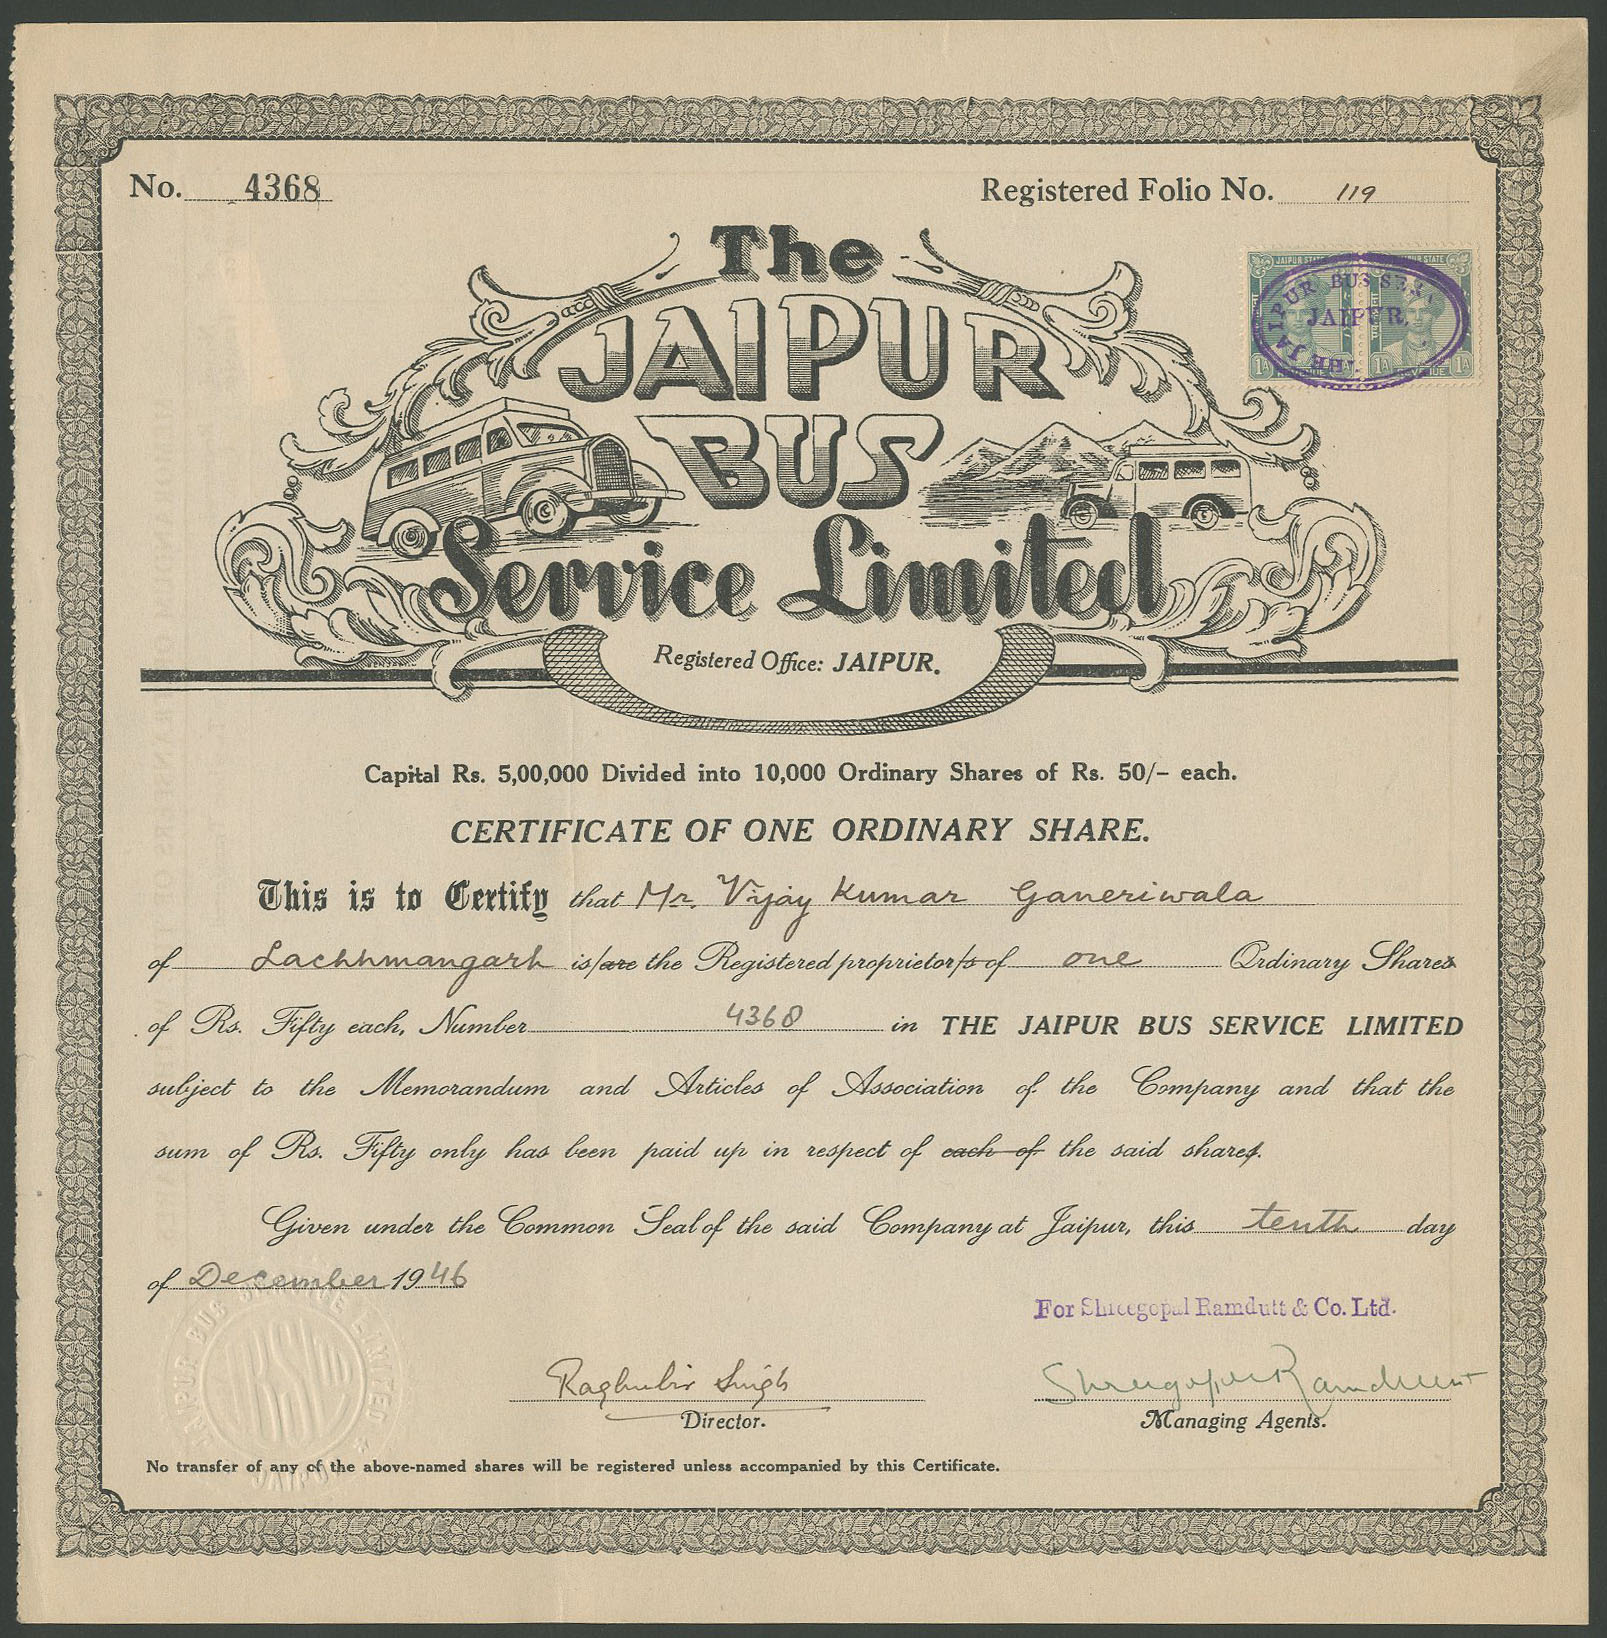 No. 4368
Registered Folio No. 119
The
JAIPUR
BUS
Service Limited
Registered Office: JAIPUR.
JAIPUR STATE JAIPUR STATE
THE JAIPUR BUS
JAIPUR.
1A 1A 1A
Capital Rs. 5,00,000 Divided into 10,000 Ordinary Shares of Rs. 50/- each.
CERTIFICATE OF ONE ORDINARY SHARE.
This is to Certify that Mr. Vijay Kumar Ganeriwala
of Lachhmangarh is/are the Registered proprietor/s of one Ordinary Shares
of Rs. Fifty each, Number 4368 in THE JAIPUR BUS SERVICE LIMITED
subject to the Memorandum and Articles of Association of the Company and that the
sum of Rs. Fifty only has been paid up in respect of each of the said shares.
Given under the Common Seal of the said Company at Jaipur, this tenth day
of December 1946
JAIPUR BUS SERVICE LIMITED
JAIPUR
For Shreegopal Ramdutt & Co. Ltd.
Raghubir Singh
Director.
Shreegopal Ramdutt
Managing Agents.
No transfer of any of the above-named shares will be registered unless accompanied by this Certificate.